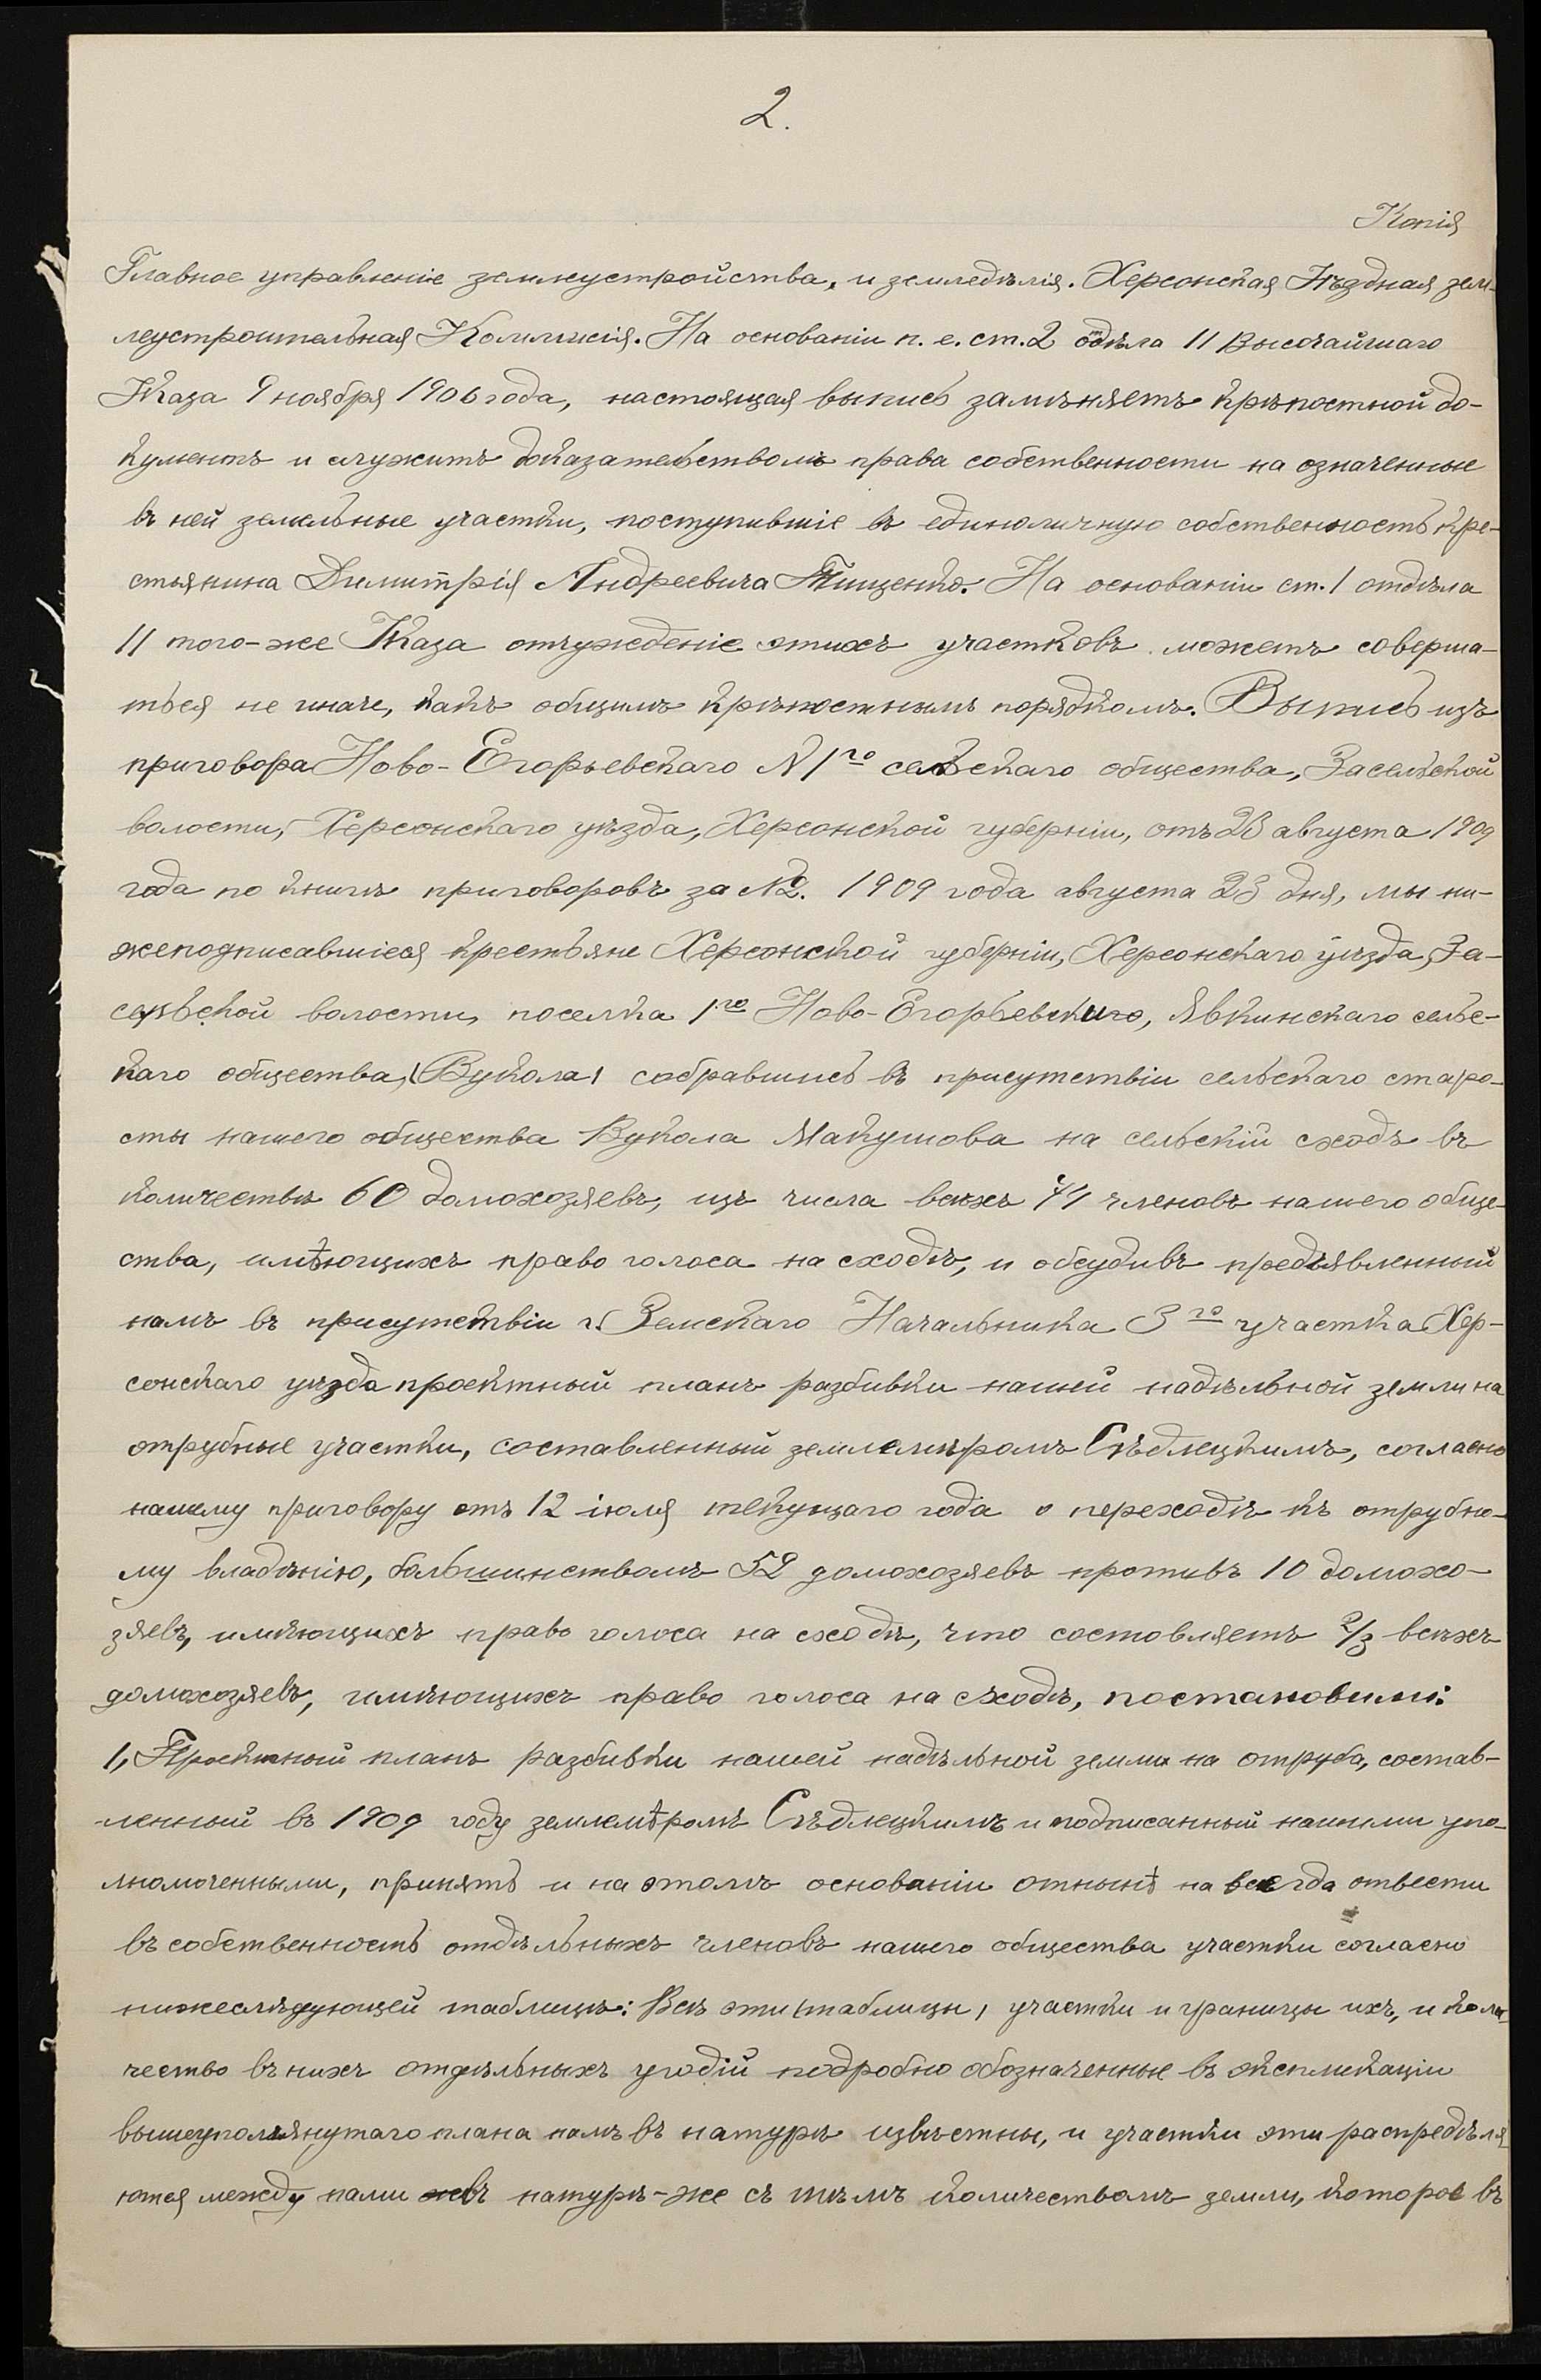 2.
Копія
Главное управленіе землеустройства, и земледѣлія. Херсонская Уѣздная зем-
леустроительная Коммисія. На основаніи п. е. ст. 2 отдѣла II Высочайшаго
Указа 9 ноября 1906 года, настоящая выпись замѣняетъ крѣпостной до-
кументъ и служитъ доказательствомъ права собственности на означенные
въ ней земельные участки, поступившіе въ единоличную собственность кре-
стьянина Димитрія Андреевича Тищенко. На основаніи ст. 1 отдѣла
II того-же Указа отчужденіе этихъ участковъ можетъ соверша-
ться не иначе, какъ общимъ крѣпостнымъ порядкомъ. Выпись изъ
приговора Ново-Егорьевскаго N 1го сельскаго общества, Засельской
волости, Херсонскаго уѣзда, Херсонской губерніи, отъ 23 августа 1909
года по книгѣ приговоровъ за №2. 1909 года августа 23 дня, мы ни-
жеподписавшіеся крестьяне Херсонской губерніи, Херсонскаго уѣзда, За-
сельской волости, поселка 1го Ново-Егорьевскаго, Явкинскаго сельс-
каго общества, (Вукола) собравшись въ присутствіи сельскаго старо-
сты нашего общества Вукола Макушова на сельскій сходъ въ
количествѣ 60 домохозяевъ, изъ числа всѣхъ 71 членовъ нашего обще-
ства, имѣющихъ право голоса на сходѣ, и обсудивъ предъявленный
намъ въ присутствіи г. Земскаго Начальника 3го участка Хер-
сонскаго уѣзда проектный планъ разбивки нашей надѣльной земли на
отрубные участки, составленный землемѣромъ Сѣдлецкимъ, согласно
нашему приговору отъ 12 іюля текущаго года о переходѣ къ отрубно-
му владѣнію, большинствомъ 52 домохозяевъ противъ 10 домохо-
зяевъ, имѣющихъ право голоса на сходѣ, что состовляетъ 2/3 всѣхъ
домохозяевъ, имѣющихъ право голоса на сходѣ, постановили:
1, Проектный планъ разбивки нашей надѣльной земли на отруба, состав-
ленный въ 1909 году землемѣромъ Сѣдлецкимъ и подписанный нашими упо-
лномоченными, принять и на этомъ основаніи отнынѣ на всегда отвести
въ собственность отдѣльныхъ членовъ нашего общества участки согласно
нижеслѣдующей таблицѣ: Всѣ эти (таблицы) участки и границы ихъ, и коли
чество въ нихъ отдѣльныхъ угодій подробно обозначенные въ экспликаціи
вышеупомянутаго плана намъ въ натурѣ извѣстны, и участки эти распредѣля
ются между нами въ натурѣ-же съ тѣмъ количествомъ земли, которое въ